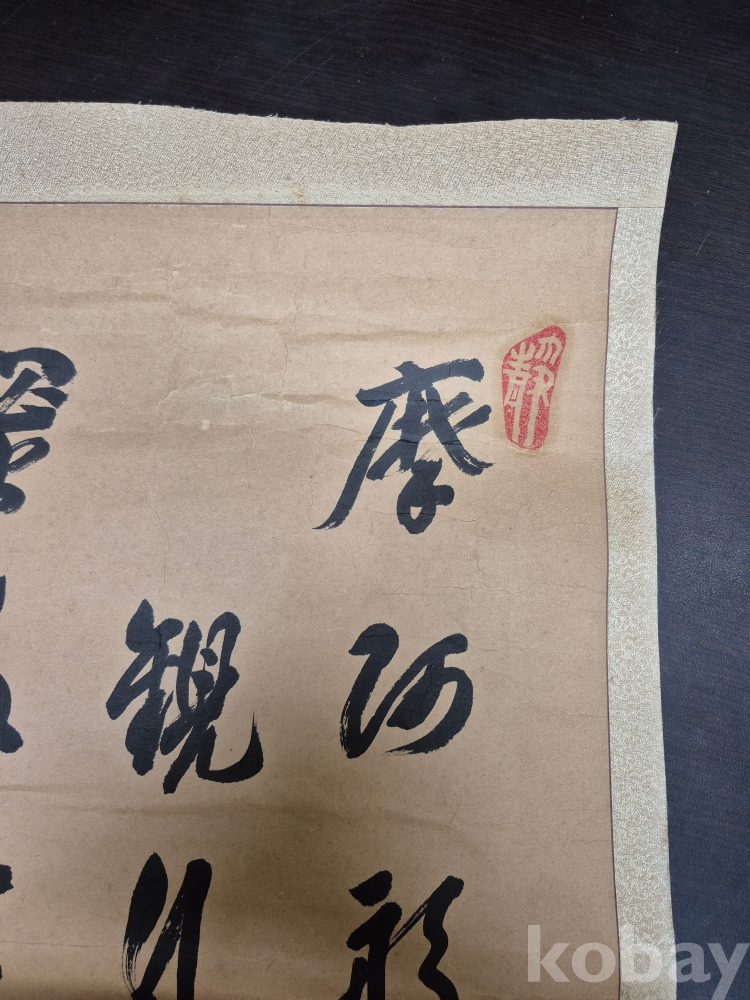 摩訶般
觀自
羅
kobay